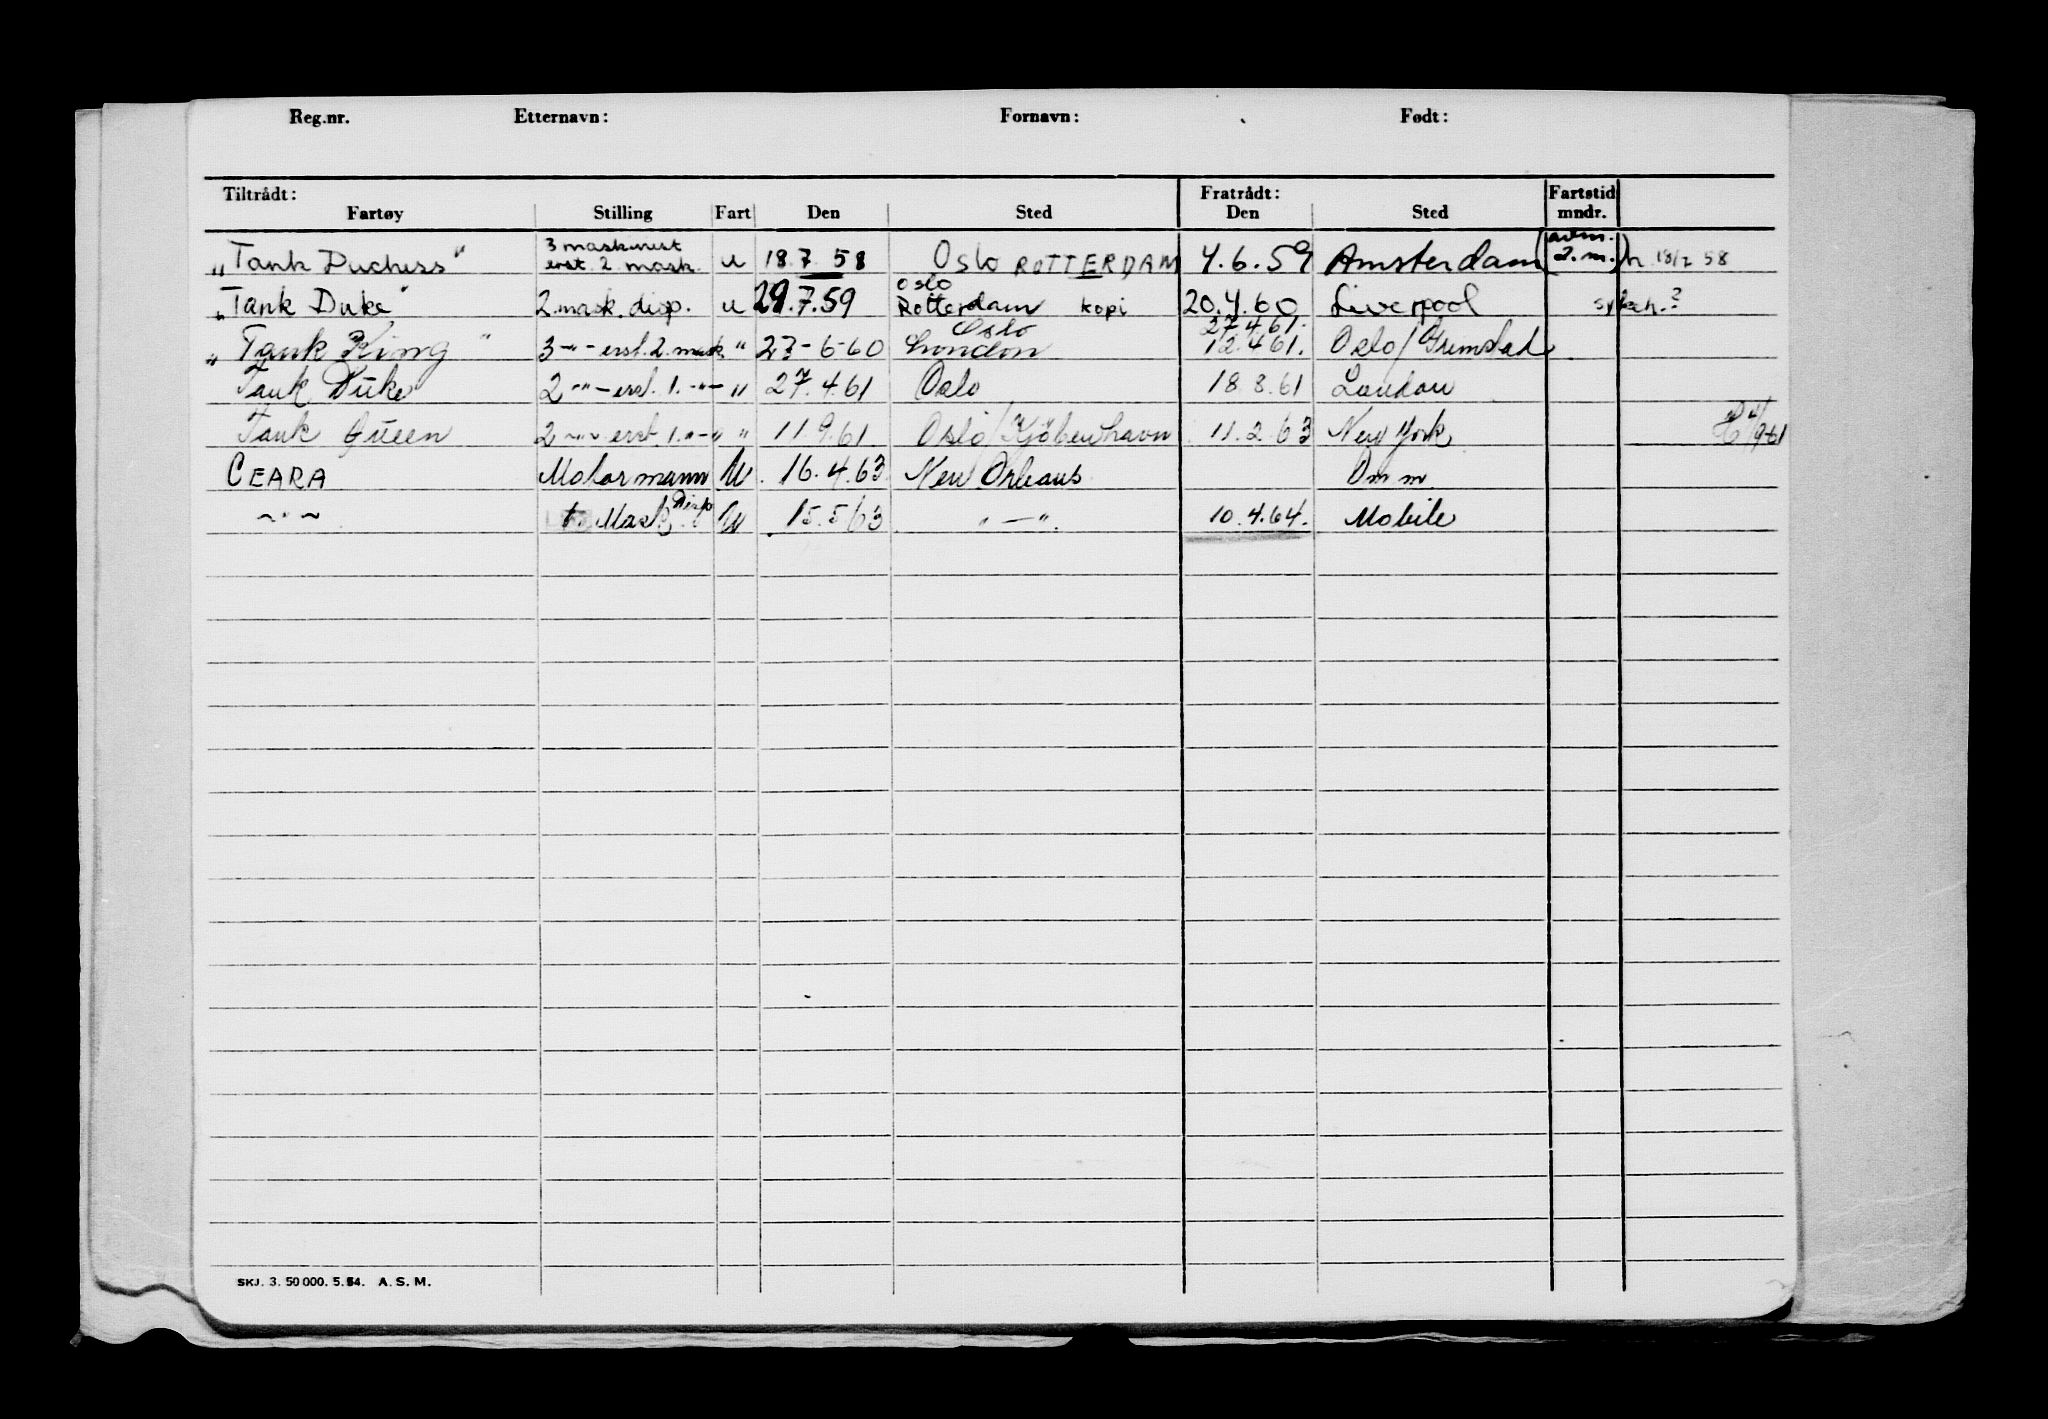 Reg.nr. Etternavn: Fornavn: Født:
Tiltrådt: Fratrådt: Fartstid
Fartøy Stilling Fart Den Sted Den Sted mndr.
3 maskinist
"Tank Duchess" erst. 2 mask. u 18.7.58 Oslo ROTTERDAM 4.6.59 Amsterdam 2.m.) 18/7 58
Oslo
"Tank Duke" 2.mask.disp. u 29.7.59 Rotterdam kopi 20.4.60 Liverpool
Oslo 27.4.61.
"Tank King" 3 -"- erst. 2. mask. " 23-6-60 London 12.4.61. Oslo/Grimstad
Tank Duke 2 -"- erst. 1. -"- " 27.4.61 Oslo 18.8.61 London
Tank Queen 2 -"- erst. 1. -"- " 11.9.61 Oslo/Kjöbenhavn 11.2.63 New York
CEARA Motormann U 16.4.63 New Orleans Omm
-"- Mask Disp U 15.5.63 "—". 10.4.64. Mobile
SKJ. 3. 50 000. 5.54. A. S. M.